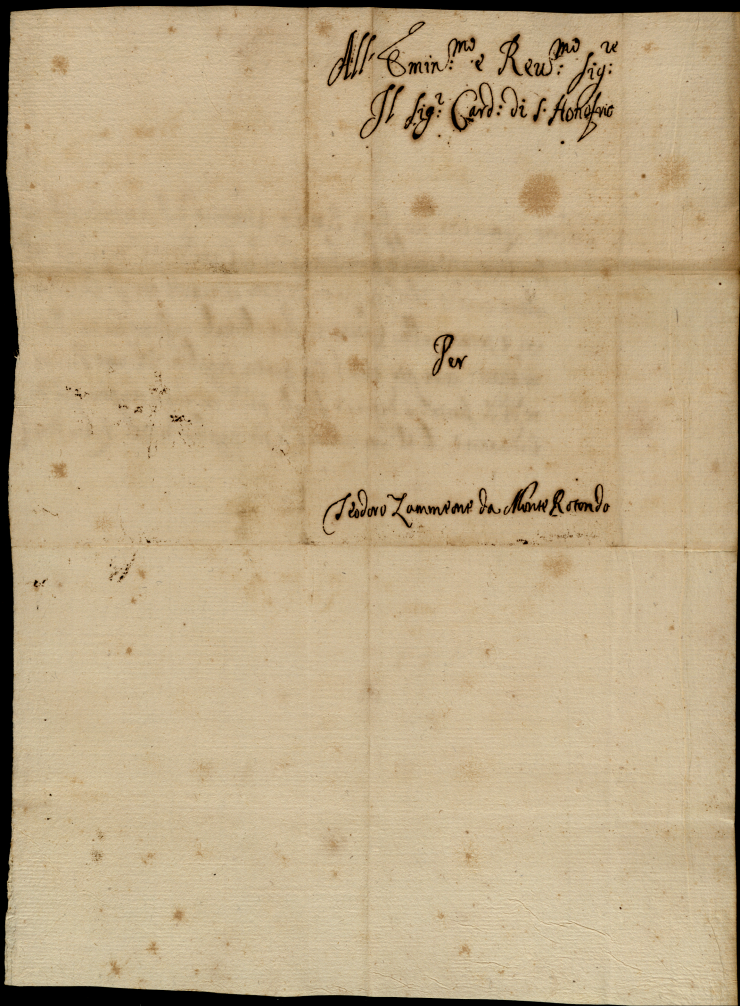 All' Emin:mo e Reu:mo Sig:re
Il Sig:r Card: di S. Honofrio
Per
Teodoro Zammeone da Monte Rotondo